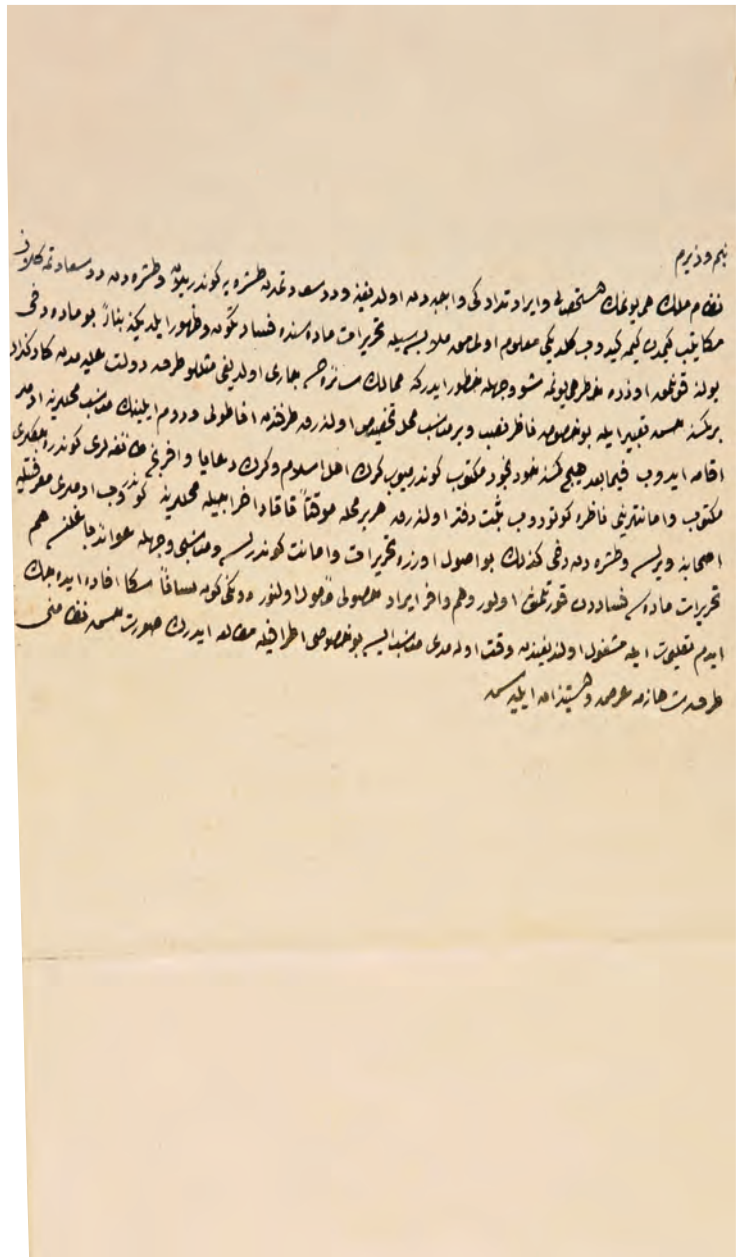 بنم وزیرم
نظام ملك هر یوندن استحصالی و ایراد تدارکی واجبه‌دن اولدیغنه و درسعادتدن طشره‌یه کوندریلان و طشره‌دن درسعادته کلان
مکاتیب کیمدن کیمه کیدوب کلدیکی معلوم اولمامق ملابسه‌سیله تحریرات ماده‌سنده فساد تکون و ظهور ایلدیکنه بناءً بو ماده دخی
یولنه قونلمق اوزره خاطر همایونمه شو وجهله خطور ایدر که ممالك سائره‌ده جاری اولدیغی مثللو طرف دولت علیه‌مدن کارکذار
برکسنه حسن تعبیر ایله بو خصوصه ناظر نصب و بر مناسب محل تخصیص اولنه‌رق طرفندن اناطولی و روم ایلینك مناسب محللرینه آدملر
اقامه ایدوب فیمابعد هیچ کسنه خود بخود مکتوب کوندرمیوب کرك اهل اسلام و کرك رعایا و افرنج طائفه‌لری کوندره‌جکلری
مکتوب و امانتلرینی ناظره کوتوروب ثبت دفتر اولنه‌رق هر بر محله موقتاً قالقار اخراجیله محللرینه کوندروب آدملری معرفتیله
اصحابنه ویرلسه و طشره‌دن دخی کذلك بو اصول اوزره تحریرات و امانت کوندرلسه و مناسبی وجهله عوائد آلنسه هم
تحریرات ماده‌سی فساددن قورتلمش اولور و هم وافر ایراد حصولی مأمول اولنور دونکی کون شفاهاً سکا افاده ایده‌جك
ایدم تعلیمات ایله مشغول اولندیغندن وقت اولمدی مناسب ایسه بو خصوصی اطرافیله مطالعه ایدرك صورت حسن نظامنی
طرف شاهانه‌مه عرض و استیذان ایلیه‌سن